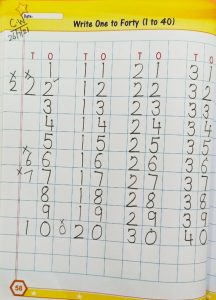 Date:
Write One to Forty (1 to 40)
C.W
T O T O T O T O
1 11 21 31
2 2 12 22 32
3 13 23 33
4 14 24 34
5 15 25 35
6 6 16 26 36
7 17 27 37
8 18 28 38
9 19 29 39
10 20 30 40
56